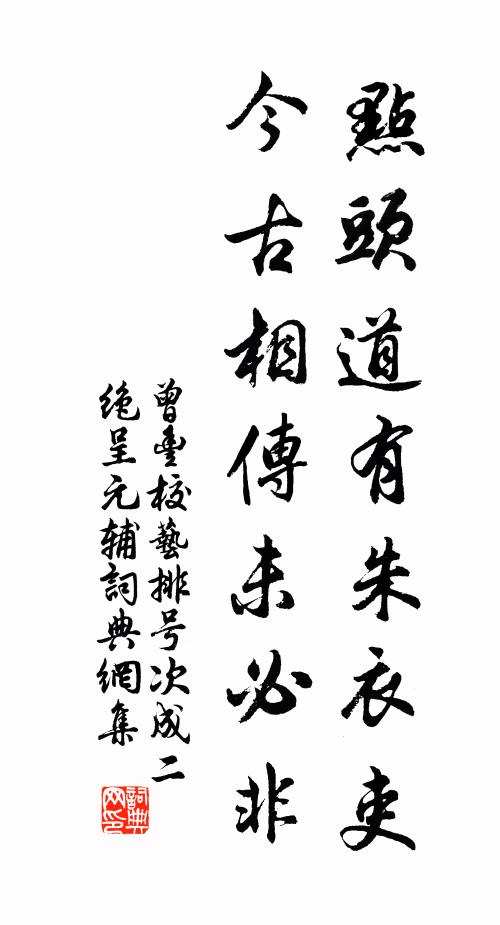 點頭道有朱衣吏
今古相傳未必非
曾豐校藝排号次成二
絶呈元辅詞典網集
詞典
网印